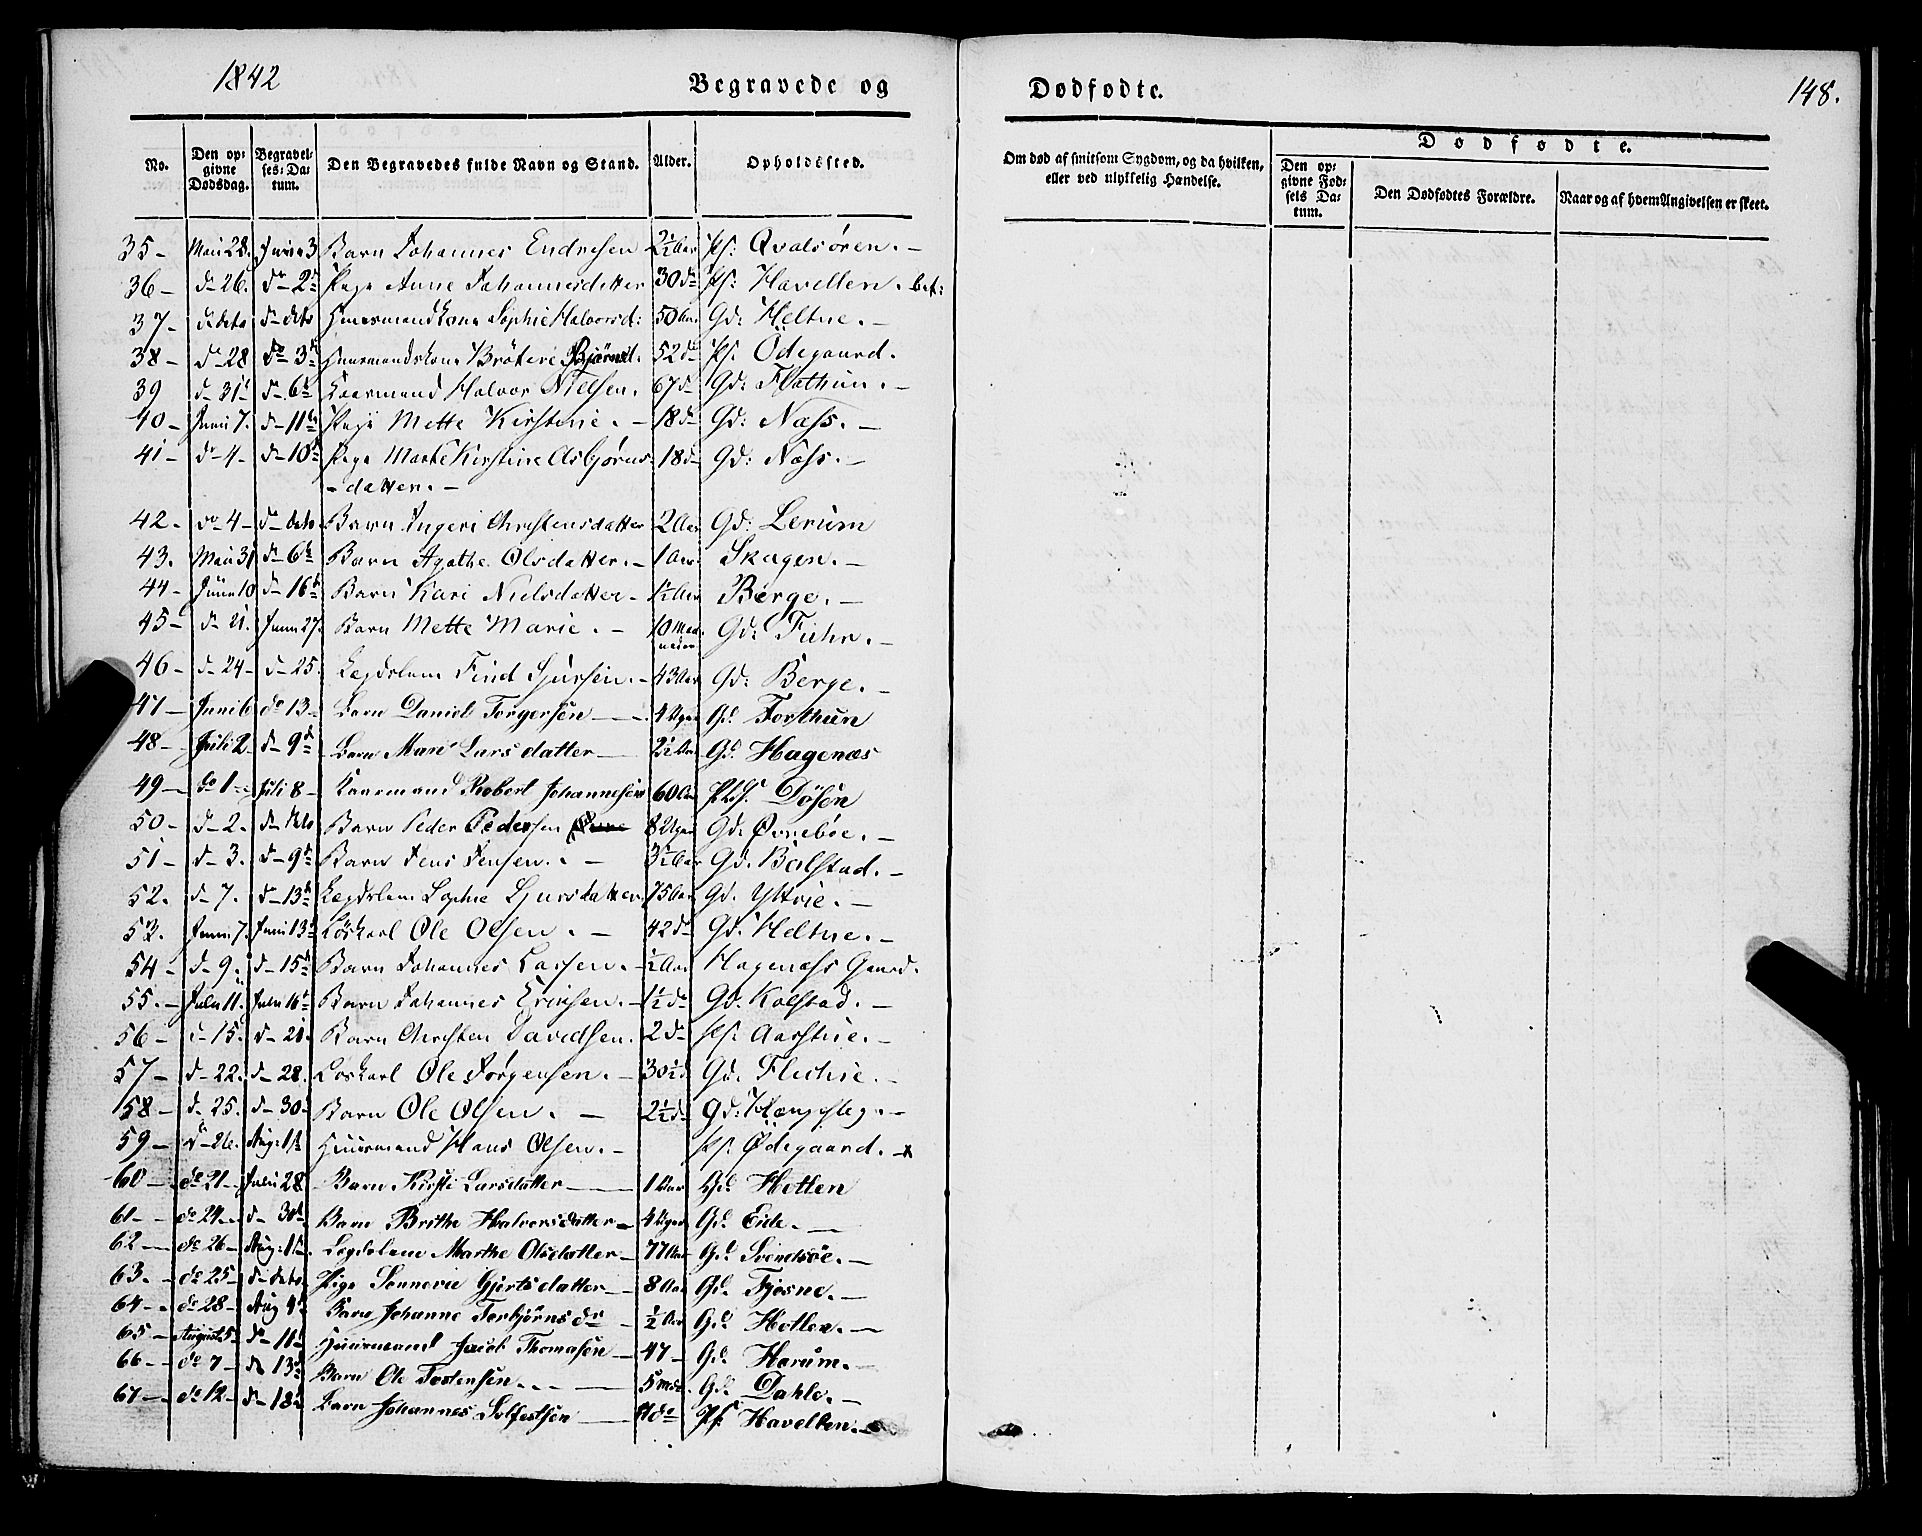 1842
Begravede og
Dødfødte.
148.
No. Den opgivne Dødsdag. Begravelses-Datum. Den Begravedes fulde Navn og Stand. Alder. Opholdssted.
Om død af smitsom Sygdom, og da hvilken, eller ved ulykkelig Hændelse.
Dødfødte.
Den opgivne Fødsels Datum. Den Dødfødtes Forældre. Naar og af hvem Angivelsen er skeet.
35 - Mai 28. Juni 3 Barn Johannes Endresen 2½ Aar Ps: Qvalsøren. -
36 - d- 26. d- 2d Pige Anne Johannesdatter 30 do Ps: Havellen.
37 - d- deto d- deto Huusmandskone Sophie Halvorsd: 50 Aar Gd: Heltne. -
38 - d- 28 do 3d Huusmandskone Brøteve 52 d Ps. Ödegaard.
39 d- 31t d- 6t Kaarmand Halvor Nielsen. 67 d- Gd: Flathun. -
40 - Juni 7. d- 11te Pige Mette Kirstine. - 18 d- Gd: Næss. -
41 - d- 4 - d- 10d Pige Marte Kirstine Asbjørns- 18 d- Gd: Næss. -
- datter. -
42. do 4 - d- deto Barn Ingeri Christensdatter 2 Aar Gd: Lerum
43. Mai 31 d- 6te Barn Agathe Olsdatter. - 1 Aar. Skagen. -
44 - Juni 10 d- 16te Barn Kari Nielsdatter - 1½ Aar Berge. -
45 - d- 21. Juni 27. Barn Mette Marie. - 10 Maaneder Gd: Fuhr. -
46 - d- 24 - d- 25. Legdslem Find Sjursen. - 43 Aar Gd: Berge. -
47 - Juni 6 do 13 - Barn Daniel Torgersen - 4 Uger Gd. Forthun
48 - Juli 2 d- 9d Barn Mari Larsdatter - 2½ Aar Gd. Hagenæs
49 - do 1 - Juli 8 - Kaarmand Robert Johannesen 60 Aar Døsen
50 - d- 2. d- deto Barn Peder Pedersen 8 Uger Gd. Øvrebøe. -
51 - d- 3. d- 9de Barn Jens Jensen. - 3½ Aar Gd. Bolstad. -
52. d- 7. d- 13d Legdslem Sophie Sjursdatter 75 Aar Gd. Yttrie. -
53. Juni 7. Juni 13d Løskarl Ole Olsen. - 42 d- Gd. Heltne. -
54 - d- 9. d- 15d Barn Johannes Larsen. - ½ Aar Hagenæss Gaard.
55. - Juli 11. Juli 16t Barn Johannes Ericksen. - 1½ d- Gd. Kolstad. -
56 - d- 15. d- 21. Barn Christen Davidsen. 2 d- Ps. Aasetrie. -
57 - d- 22. d- 28. Løskarl Ole Jørgensen. - 30½ d Gd. Flichie. -
58 - d- 25. d- 30. Barn Ole Olsen. - 2½ d-
59 - d- 26. Aug: 1te Huusmand Hans Olsen. - Ps. Ödegaard. -
60 - do 21 - Juli 28 Barn Kirsti Larsdatter - 1 Aar Gd. Hotlen
61 - do 24 - d- 30te Barn Brithe Halvorsdatter - 4 Uger Gd. Eide. -
62 - do 26 - Aug: 1te Legdslem Marthe Olsdatter - 77 Aar Gd. Svendsøe. -
63. - do 25 - d- deto Pige Sønnevie Gjertsdatter - 8 Aar Gd. Fjøsne. -
64 - do 28 - Aug 4de Barn Johanne Torbjørnsdr - ½ Aar Gd. Hotlen. -
65 - August 5 - do 11t Huusmand Jacob Thomasen - 47 - Gd. Harum. -
66 - do 7 - do 13d Barn Ole Tostensen - 5 Mdr. Gd. Dahle. -
67 - do 12 - d- 18d Barn Johannes Solfestsen - do Ps. Havellen. -